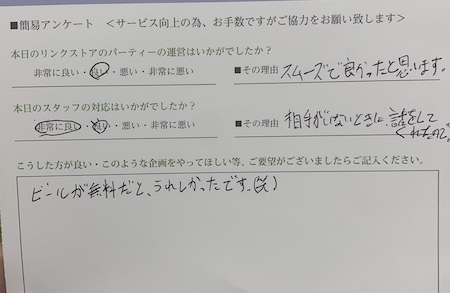 ■簡易アンケート ＜サービス向上の為、お手数ですがご協力をお願い致します＞
本日のリンクストアのパーティーの運営はいかがでしたか？
非常に良い・良い・悪い・非常に悪い ■その理由 スムーズで良かったと思います。
本日のスタッフの対応はいかがでしたか？
非常に良い・良い・悪い・非常に悪い ■その理由 相手がいないときに、話をして
くれたので。
こうした方が良い・このような企画をやってほしい等、ご要望がございましたらご記入ください。
ビールが無料だと、うれしかったです。(笑)